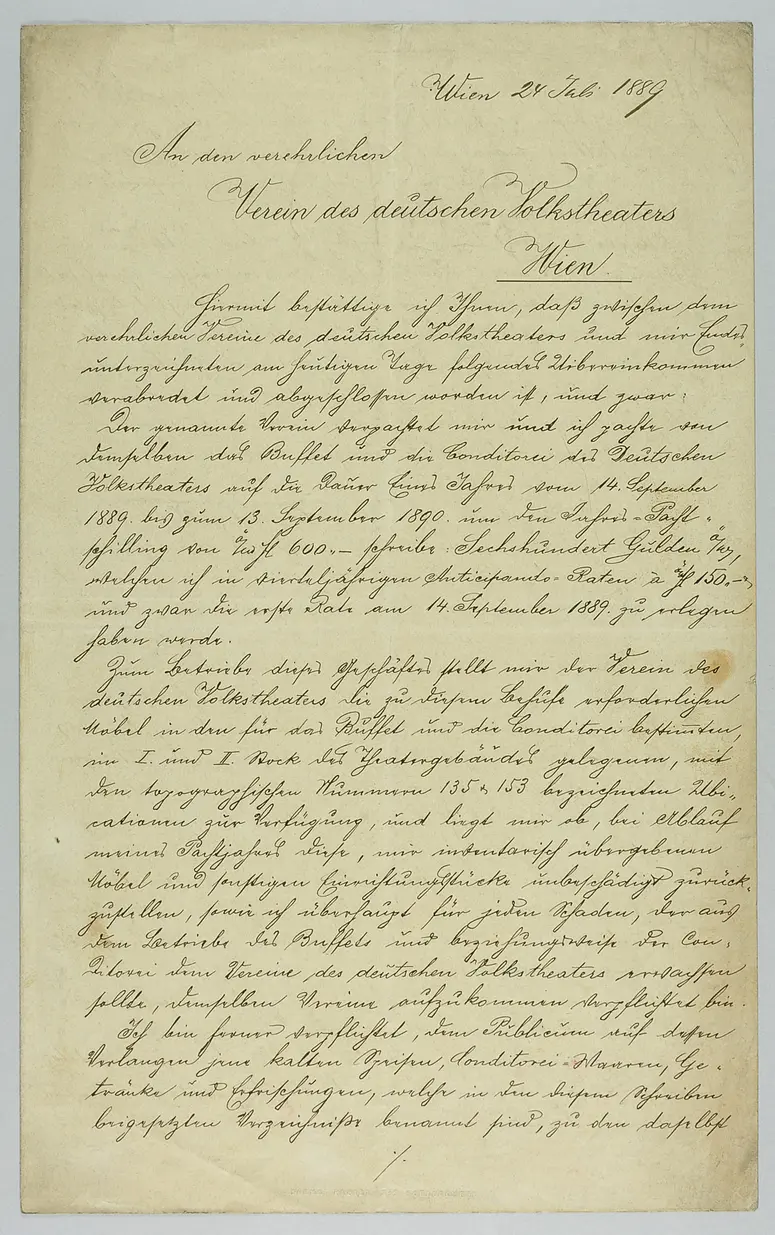 Wien 24 Juli 1889
An den verehrlichen
Verein des deutschen Volkstheaters
Wien.
Hiermit bestättige ich Ihnen, daß zwischen dem
verehrlichen Vereine des deutschen Volkstheaters und mir Endes
unterzeichneten am heutigen Tage folgendes Uibereinkommen
verabredet und abgeschlossen worden ist, und zwar:
Der genannte Verein verpachtet mir und ich pachte von
demselben das Buffet und die Conditorei des Deutschen
Volkstheaters auf die Dauer Eines Jahres vom 14. September
1889. bis zum 13. September 1890. um den Jahres-Pacht-
schilling von ö/W fl 600.– schreibe: Sechshundert Gulden ö/W,
welchen ich in vierteljährigen Anticipando-Raten à ö/W fl 150.–
und zwar die erste Rate am 14. September 1889. zu erlegen
haben werde.
Zum Betriebe dieses Geschäftes stellt mir der Verein des
deutschen Volkstheaters die zu diesem Behufe erforderlichen
Möbel in den für das Buffet und die Conditorei bestimmten,
im I. und II. Stock des Theatergebäudes gelegenen, mit
den topographischen Nummern 135 & 153 bezeichneten Ubi-
cationen zur Verfügung, und liegt mir ob, bei Ablauf
meines Pachtjahres diese, mir inventarisch übergebenen
Möbel und sonstigen Einrichtungsstücke unbeschädigt zurück-
zustellen, sowie ich überhaupt für jeden Schaden, der aus
dem Betriebe des Buffets und beziehungsweise der Con-
ditorei dem Vereine des deutschen Volkstheaters erwachsen
sollte, demselben Vereine aufzukommen verpflichtet bin.
Ich bin ferner verpflichtet, dem Publicum auf dessen
Verlangen jene kalten Speisen, Conditorei-Waaren, Ge-
tränke und Erfrischungen, welche in den diesem Schreiben
beigesetzten Verzeichniße benannt sind, zu den daselbst
./.